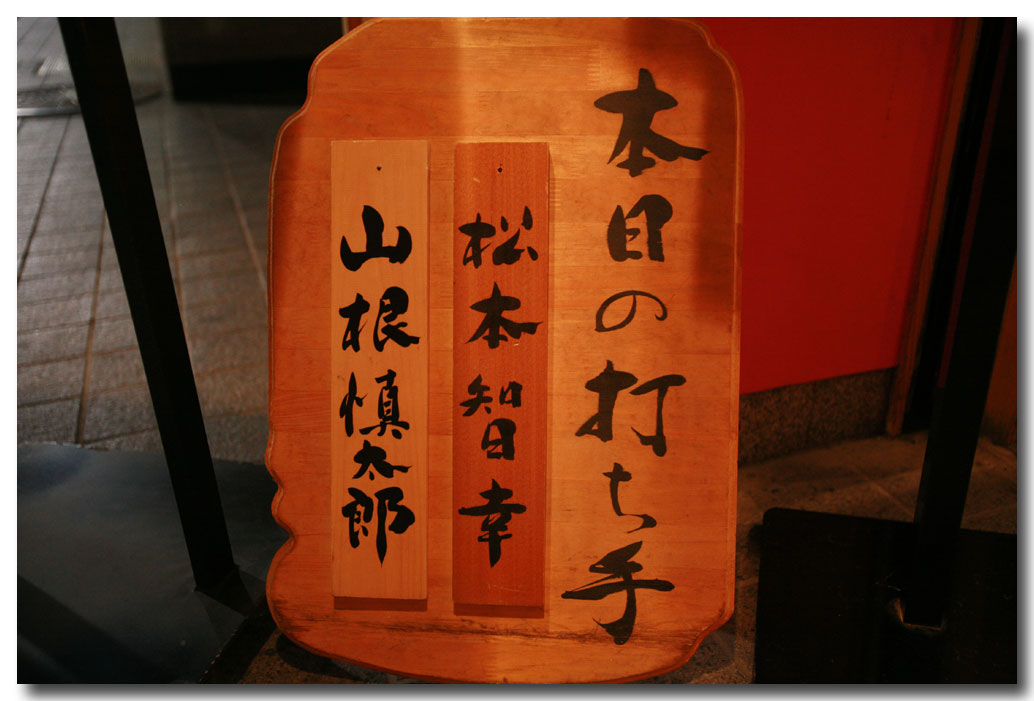 本日の打ち手
松本智幸
山根慎太郎